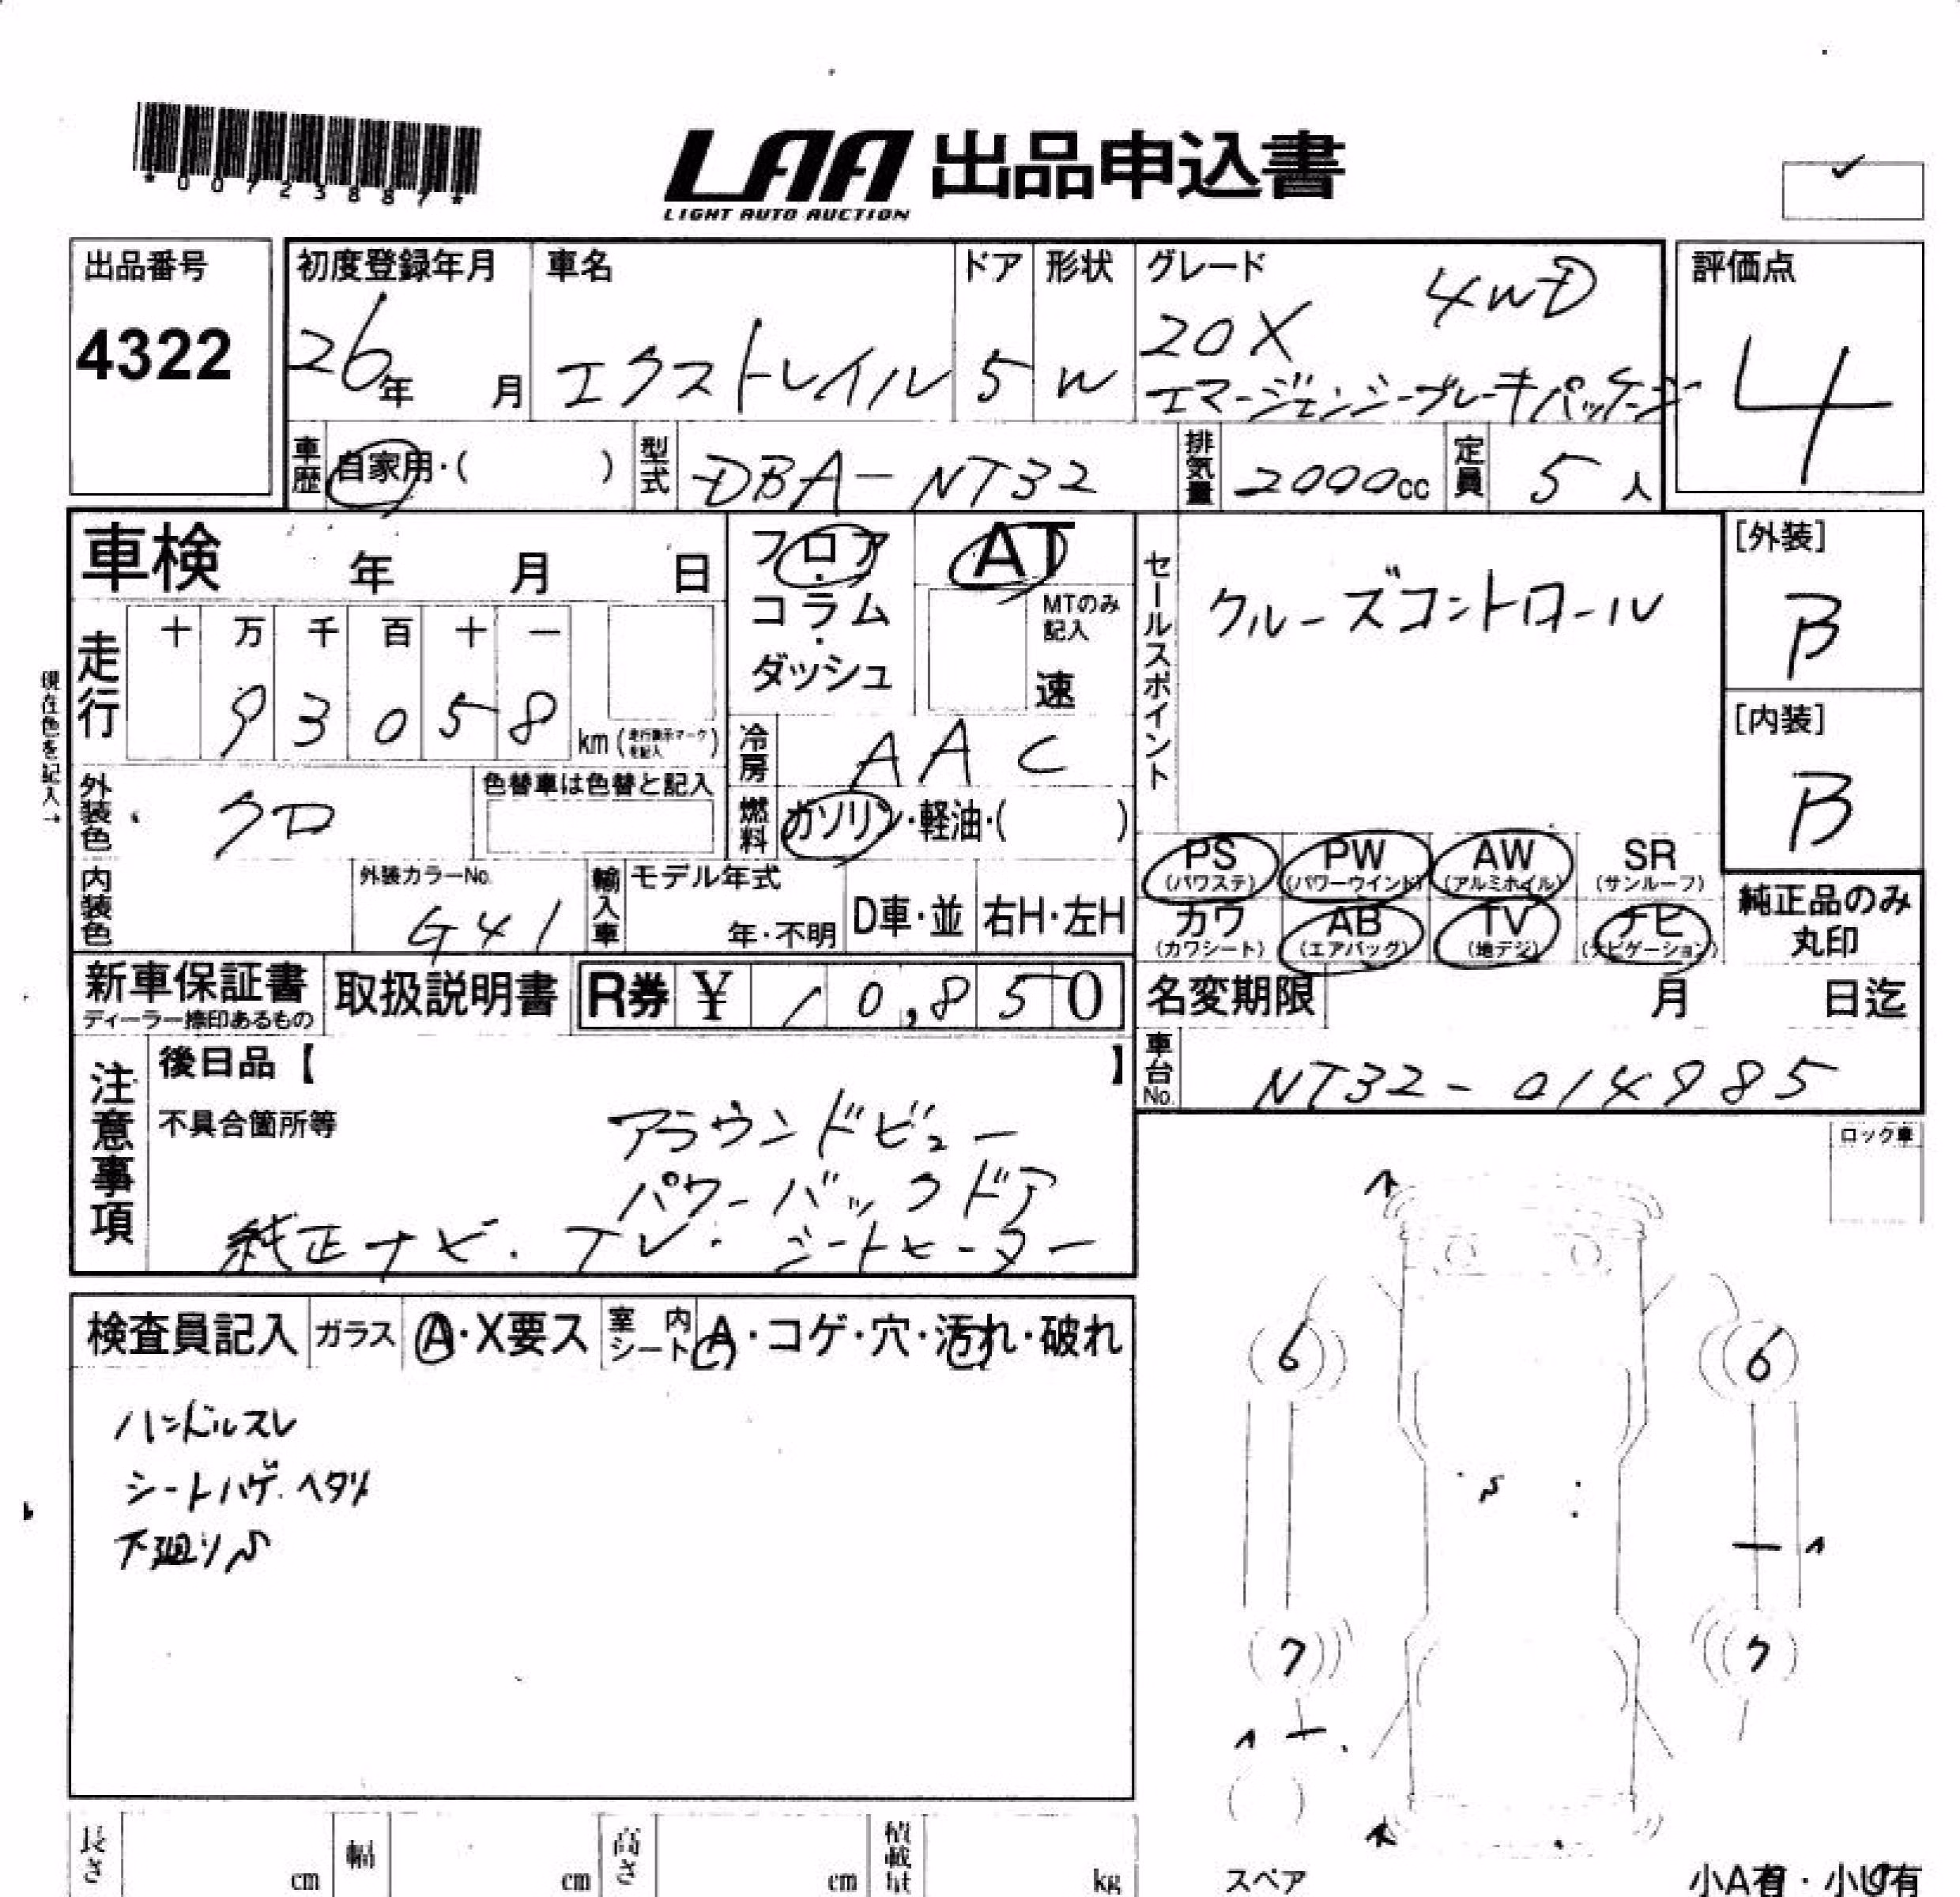 *00723887*
LAA 出品申込書
LIGHT AUTO AUCTION
出品番号
4322
初度登録年月
26年 月
車名
エクストレイル
ドア
5
形状
W
グレード
4WD
20X
エマージェンシーブレーキパッケージ
評価点
4
車歴
自家用・( )
型式
DBA-NT32
排気量
2000cc
定員
5人
車検 年 月 日
走行
十 万 千 百 十 一
9 3 0 5 8
km(走行表示マークを記入)
現在色を記入→
フロア
・
コラム
・
ダッシュ
AT
MTのみ
記入
速
冷房
AAC
燃料
ガソリン・軽油・( )
外装色
クロ
色替車は色替と記入
内装色
外装カラーNo.
G41
輸入車
モデル年式
年・不明
D車・並
右H・左H
セールスポイント
クルーズコントロール
[外装]
B
[内装]
B
PS
(パワステ)
PW
(パワーウインド)
AW
(アルミホイル)
SR
(サンルーフ)
カワ
(カワシート)
AB
(エアバッグ)
TV
(地デジ)
ナビ
(ナビゲーション)
純正品のみ
丸印
新車保証書
ディーラー捺印あるもの
取扱説明書
R券 ¥ 10,850
名変期限 月 日迄
車台No.
NT32-014985
注意事項
後日品【 】
不具合箇所等
アラウンドビュー
パワーバックドア
純正ナビ.TV.シートヒーター
ロック車
検査員記入
ガラス
A・X要ス
室内シート
A・コゲ・穴・汚れ・破れ
ハンドルスレ
シートハゲ.ヘタリ
下廻りS
6
6
7
7
長さ cm
幅 cm
高さ cm
積載量 kg
スペア
小A有・小U有